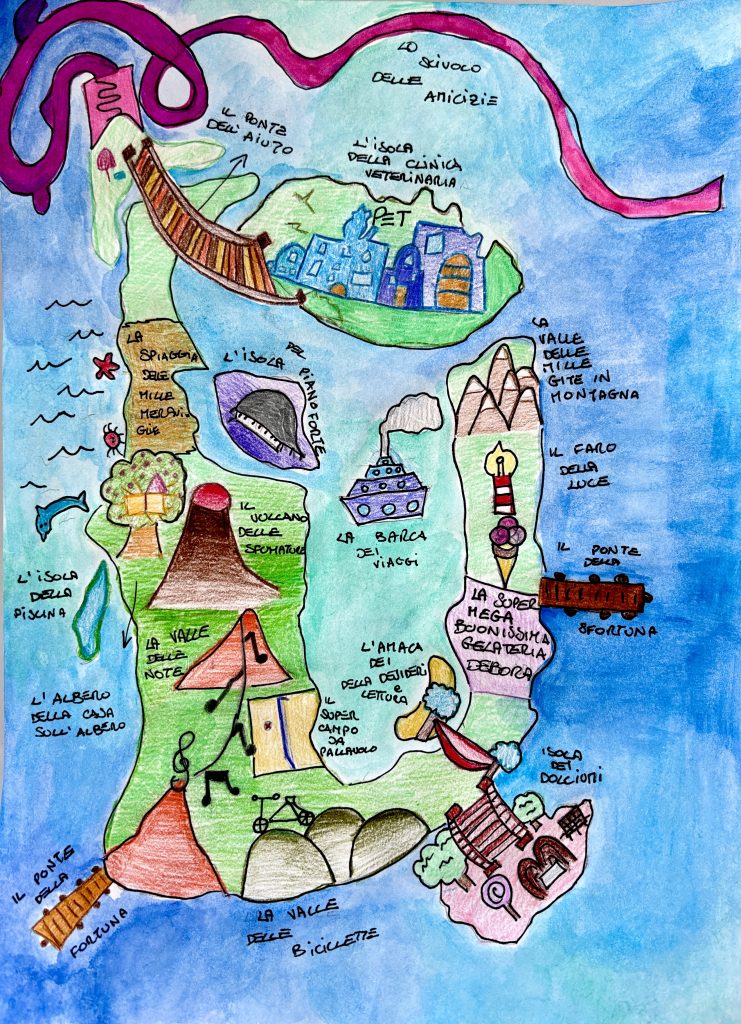 LO
SCIVOLO
DELLE
AMICIZIE
IL PONTE
DELL'AIUTO
L'ISOLA
DELLA CLINICA
VETERINARIA
PET
LA
SPIAGGIA
DELLE
MILLE
MERAVI
GLIE
L'ISOLA DEL PIANOFORTE
LA
VALLE
DELLE
MILLE
GITE IN
MONTAGNA
IL FARO
DELLA
LUCE
IL
VULCANO
DELLE
SFUMATURE
LA BARCA
DEI
VIAGGI
IL PONTE
DELLA
SFORTUNA
L'ISOLA
DELLA
PISCINA
LA SUPER
MEGA
BUONISSIMA
GELATERIA
DEBORA
LA VALLE
DELLE
NOTE
L'AMACA
DEI DESIDERI
DELLA e
LETTURA
L'ALBERO
DELLA CASA
SULL'ALBERO
IL
SUPER
CAMPO
DA
PALLAVOLO
ISOLA
DEI
DOLCIUMI
IL PONTE
DELLA
FORTUNA
LA VALLE
DELLE
BICICLETTE